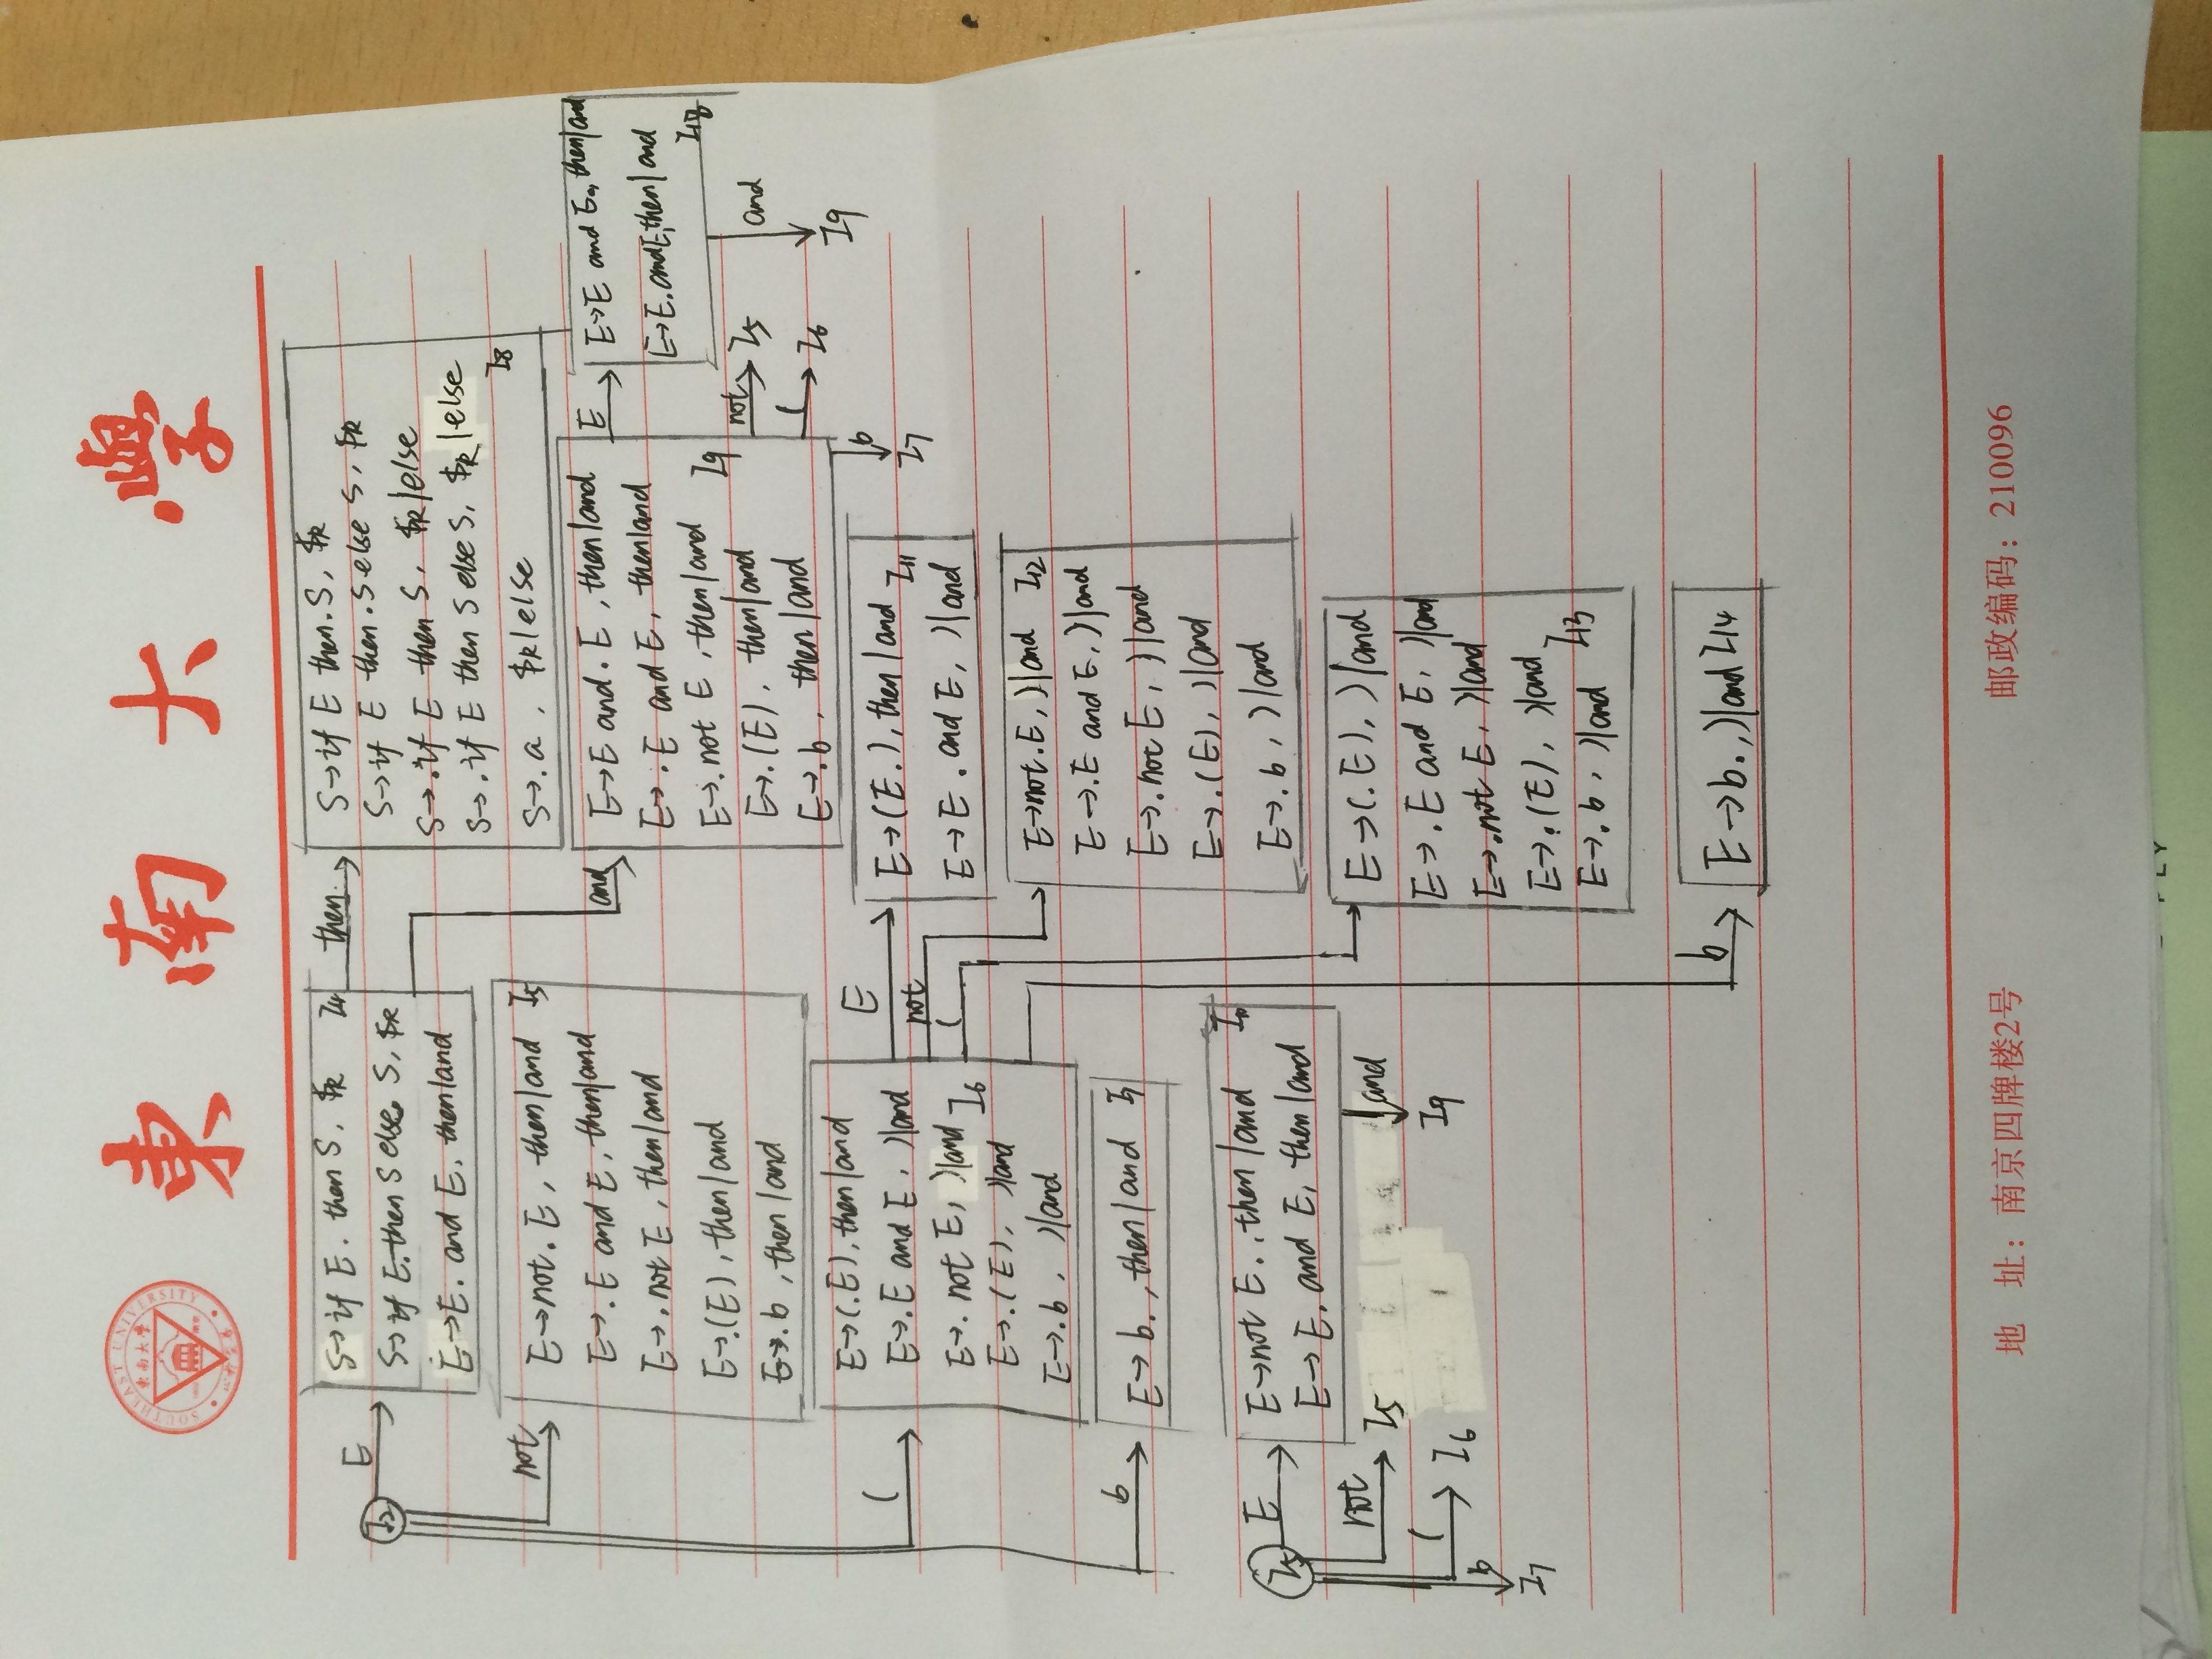 SOUTHEAST UNIVERSITY
東南大學
東南大學
I2
E
S→if E. then S, $R I4
S→if E. then S else. S, $R
E→E. and E, then/and
then
S→if E then. S, $R
S→if E then .S else S, $R
S→.if E then S, $R/else
S→.if E then S else S, $R/else
I8
S→.a , $R/else
not
E→not. E, then/and I5
E→.E and E, then/and
E→.not E, then/and
E→.(E), then/and
E→.b, then/and
and
E→E and. E, then/and
E→.E and E, then/and
E→.not E, then/and I9
E→.(E), then/and
E→.b, then/and
E
E→E and E., then/and
E→E. and E, then/and
I18
not I5
( I6
b
I7
and
I9
(
E→(.E), then/and
E→.E and E, )/and
E→.not E, )/and I6
E→.(E), )/and
E→.b, )/and
E
E→(E.), then/and I11
E→E .and E, )/and
not
E→not.E, )/and I12
E→.E and E, )/and
E→.not E, )/and
E→.(E), )/and
E→.b, )/and
(
E→(.E), )/and
E→.E and E, )/and
E→.not E, )/and
E→.(E), )/and
I13
E→.b, )/and
b
E→b., )/and I14
b
E→b., then/and I7
I5
E
E→not E., then/and I10
E→E. and E, then/and
not I5
( I6
b
I7
and
I9
地 址：南京四牌楼2号
邮政编码：210096